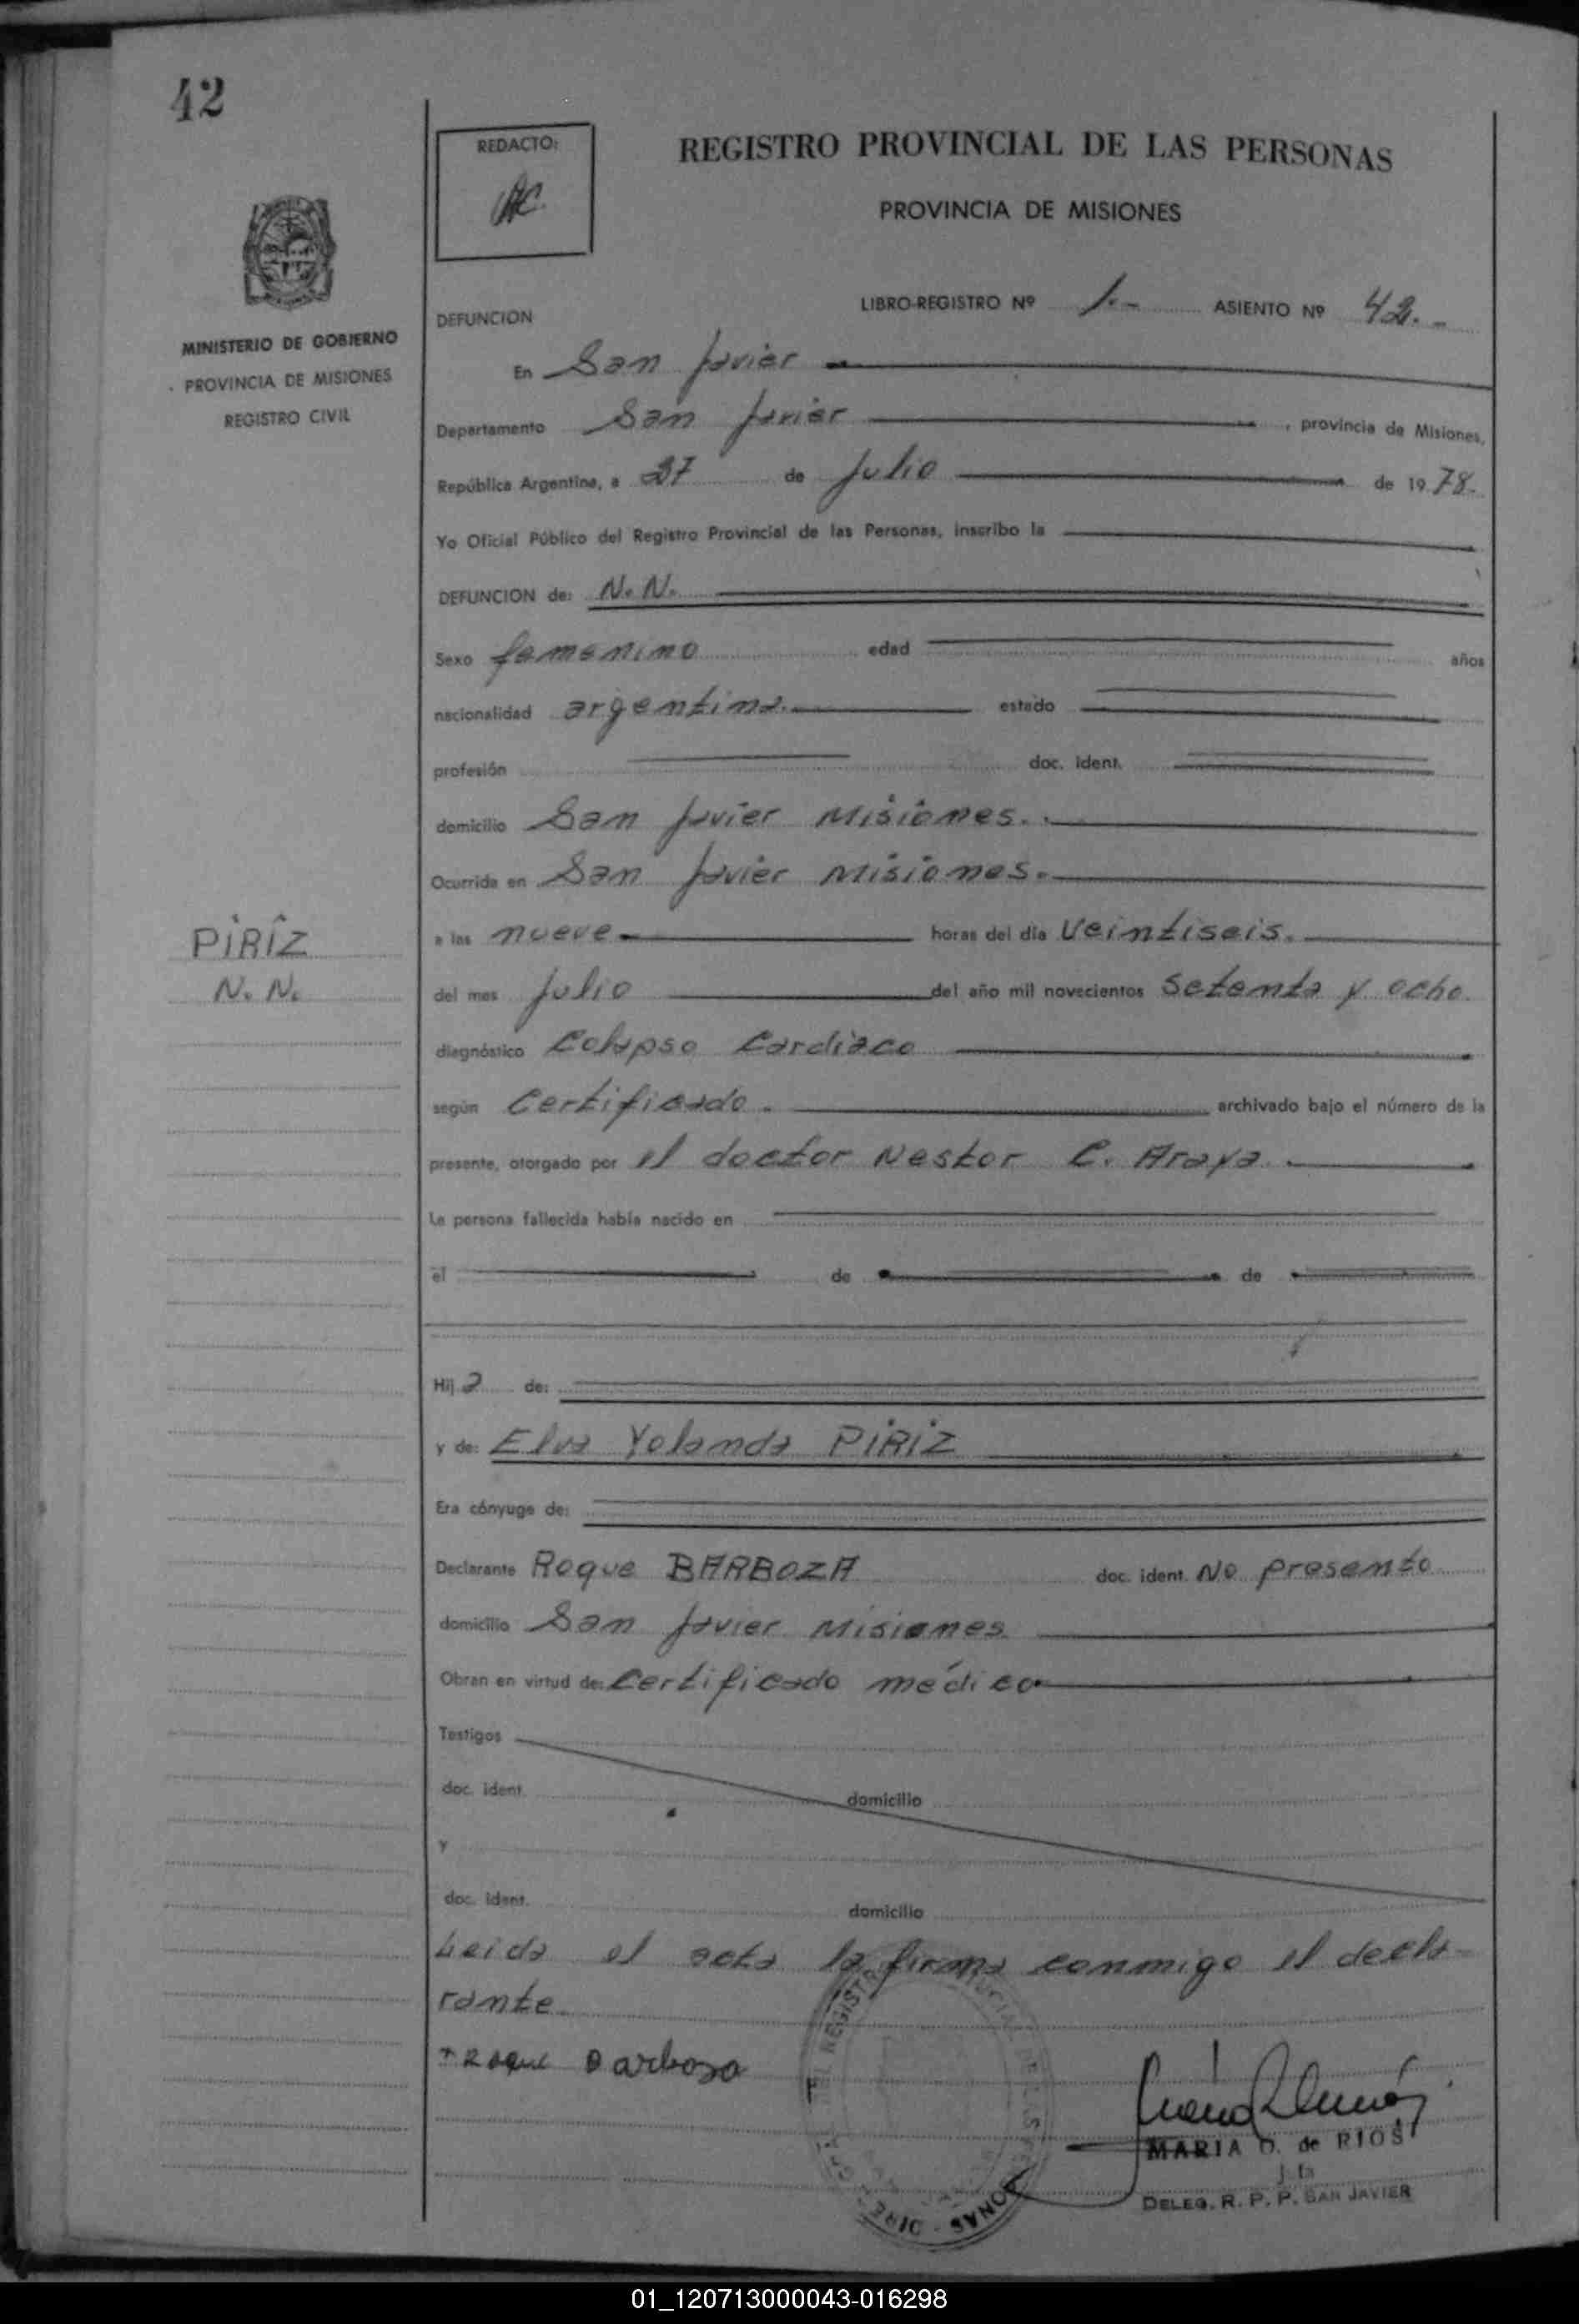 42
REDACTO:
REGISTRO PROVINCIAL DE LAS PERSONAS
PROVINCIA DE MISIONES
MINISTERIO DE GOBIERNO
PROVINCIA DE MISIONES
REGISTRO CIVIL
LIBRO-REGISTRO Nº 1.- ASIENTO Nº 42.-
DEFUNCION
En San Javier
Departamento San Javier , provincia de Misiones,
República Argentina, a 27 de Julio de 19 78.
Yo Oficial Público del Registro Provincial de las Personas, inscribo la
DEFUNCION de: N. N.
Sexo femenino edad años
nacionalidad argentina. estado
profesión doc. ident.
domicilio San Javier Misiones.
Ocurrida en San Javier Misiones.
a las nueve horas del día veintiseis.
PIRIZ
N. N.
del mes Julio del año mil novecientos setenta y ocho.
diagnóstico Colapso Cardiaco
según Certificado. archivado bajo el número de la
presente, otorgado por el doctor Nestor C. Araya.
La persona fallecida había nacido en
el de de
Hij a de:
y de: Elva Yolanda PIRIZ
Era cónyuge de:
Declarante Roque BARBOZA doc. ident. No presento
domicilio San Javier Misiones
Obran en virtud de: Certificado médico
Testigos
doc. ident. domicilio
y
doc. ident. domicilio
Leida el acta la firma conmigo el decla-
rante
Roque Barboza
MARIA O. de RIOS
Jefa
DELEG. R. P. P. SAN JAVIER
01_120713000043-016298